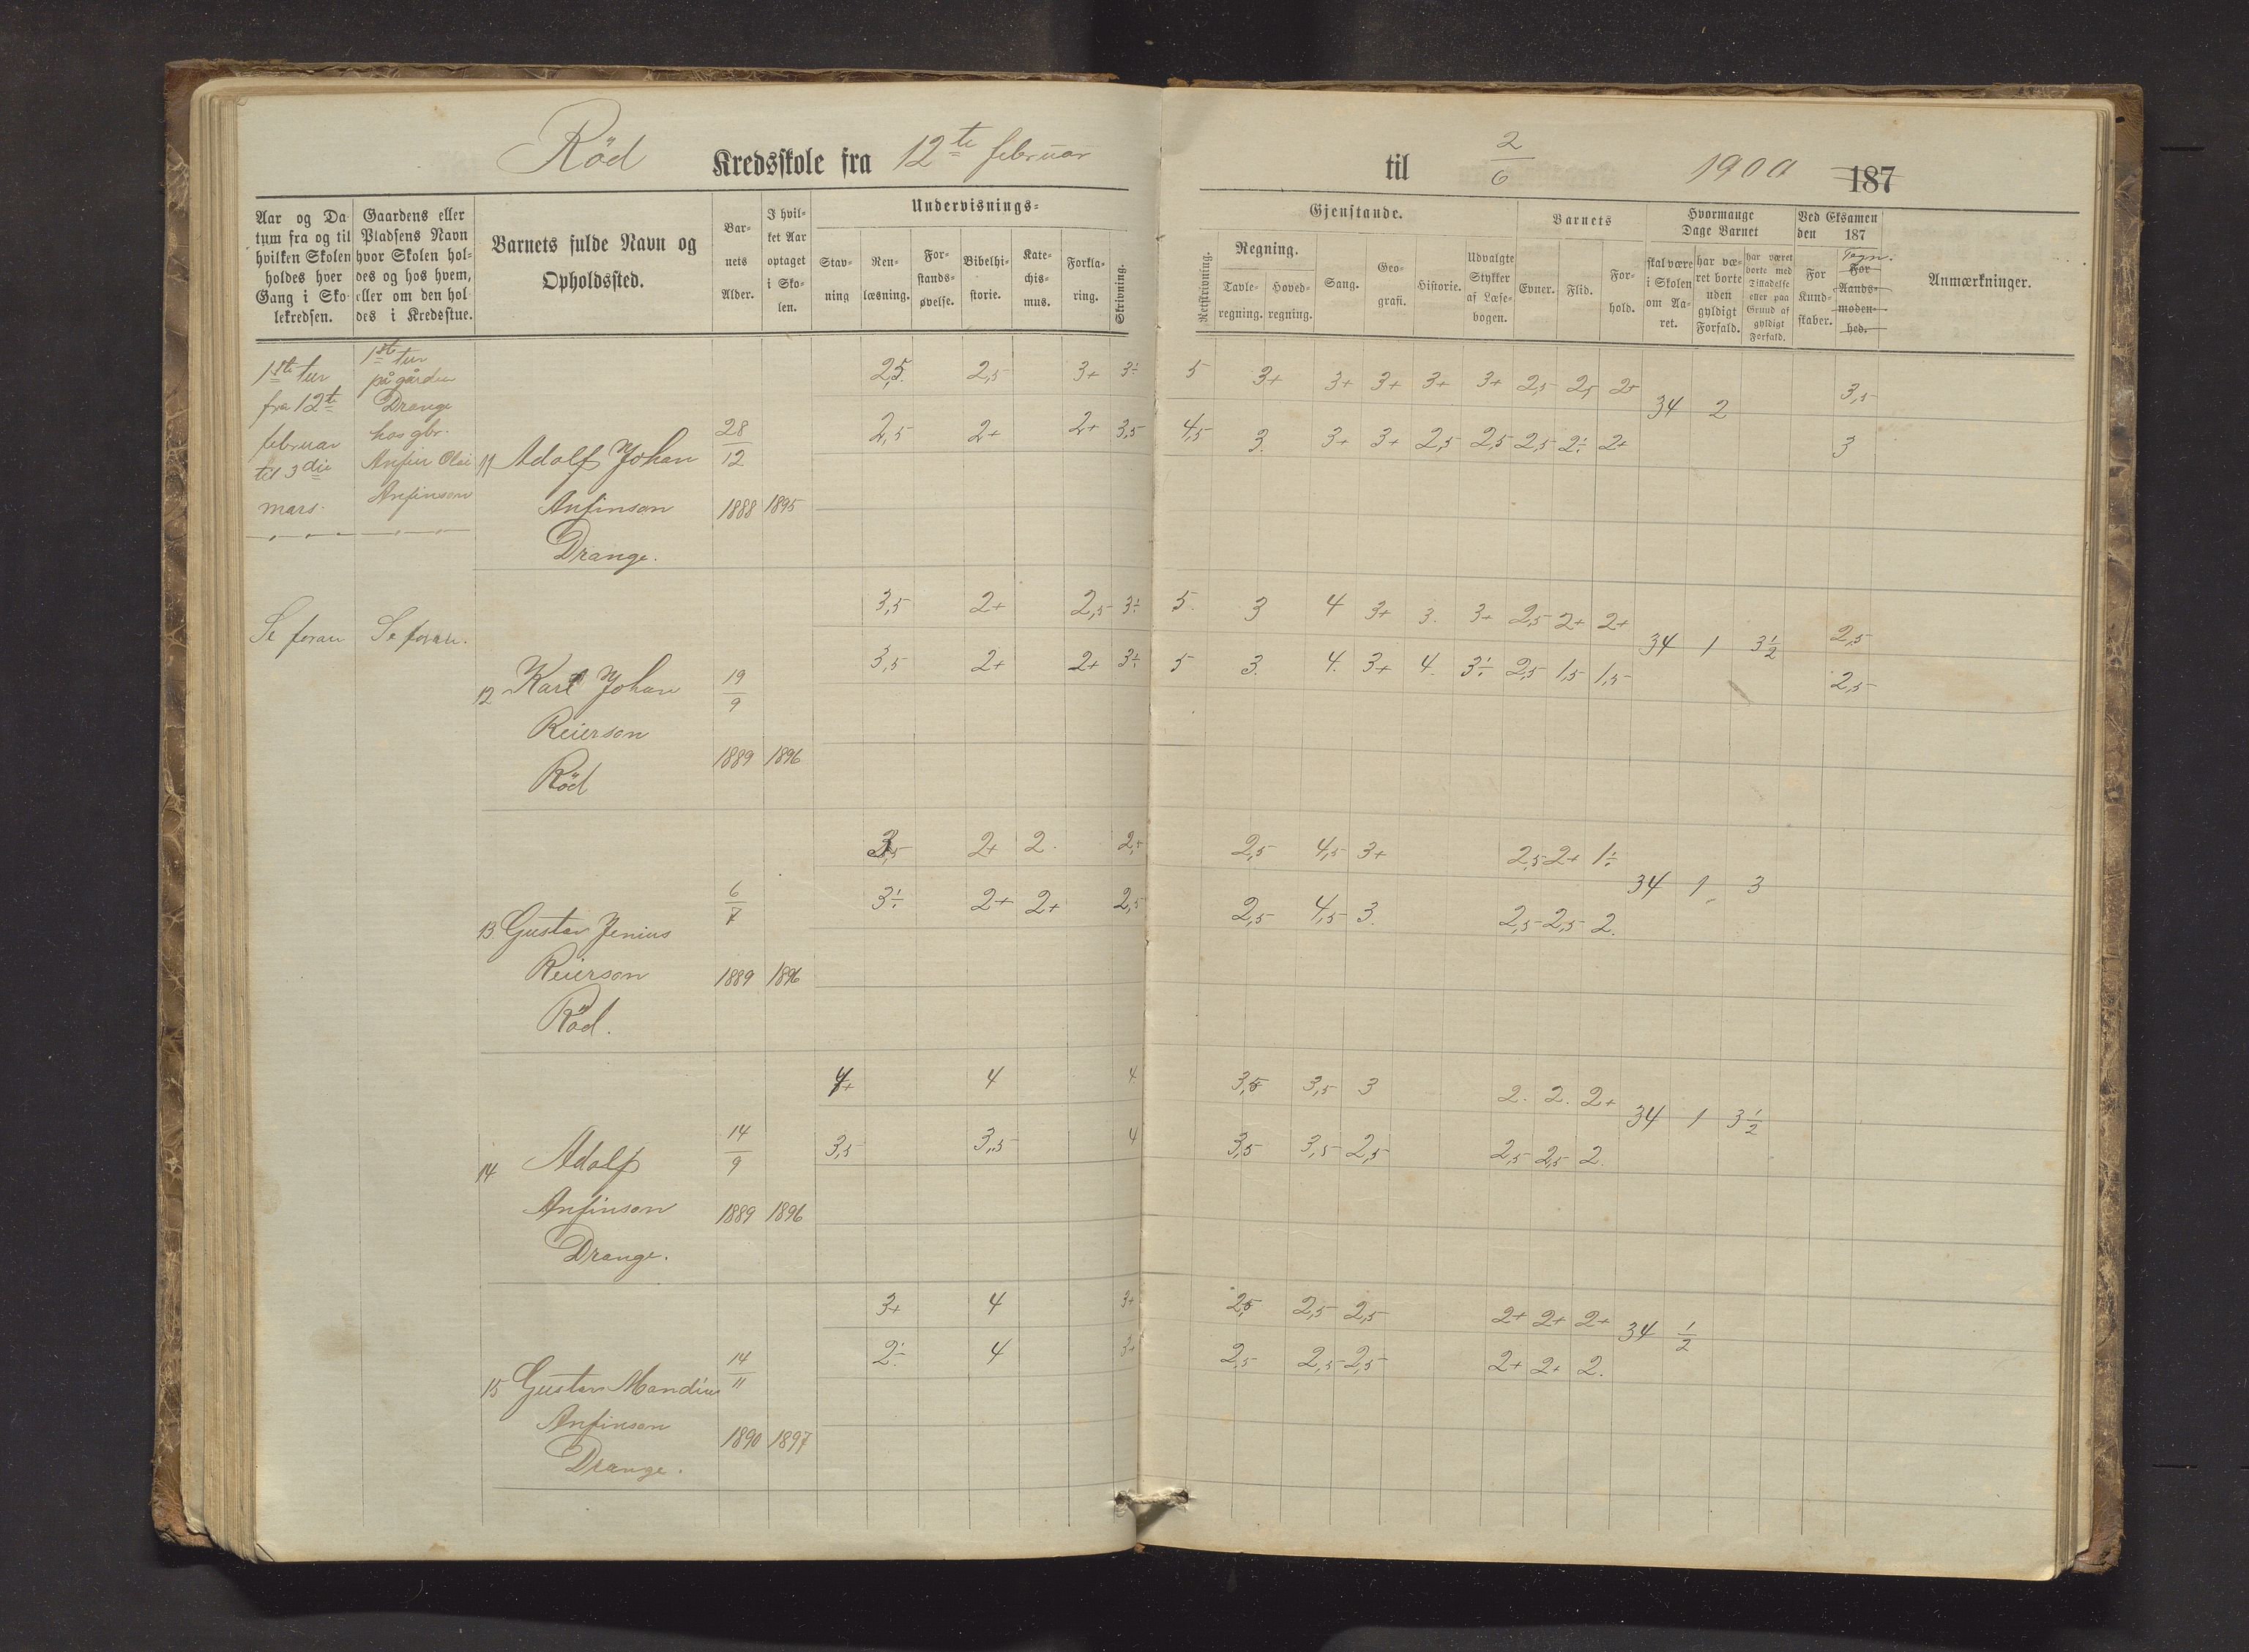 Röd Kredsskole fra 12te februar til 2/6 1900 187
Aar og Da-
tum fra og til
hvilken Skolen
holdes hver
Gang i Sko-
lekredsen.
Gaardens eller
Pladsens Navn
hvor Skolen hol-
des og hos hvem,
eller om den hol-
des i Kredsstue.
Barnets fulde Navn og
Opholdssted.
Bar-
nets
Alder.
I hvil-
ket Aar
optaget
i Sko-
len.
Undervisnings-
Stav-
ning
Ren-
læsning.
For-
stands-
øvelse.
Bibelhi-
storie.
Kate-
chis-
mus.
Forkla-
ring.
Skrivning.
Gjenstande.
Retskrivning.
Regning.
Tavle-
regning.
Hoved-
regning.
Sang.
Geo-
grafi.
Historie.
Udvalgte
Stykker
af Læse-
bogen.
Barnets
Evner.
Flid.
For-
hold.
Hvormange
Dage Barnet
skal være
i Skolen
om Aa-
ret.
har væ-
ret borte
uden
gyldigt
Forfald.
har været
borte med
Tilladelse
eller paa
Grund af
gyldigt
Forfald.
Ved Eksamen
den 187
For
Kund-
skaber.
Tegn.
For
Aands-
moden-
hed.
Anmærkninger.
1ste tur
fra 12te
februar
til 3die
mars.
1ste tur
på gården
Drange
hos gbr.
Anfin Olai
Anfinson
2,5 2,5 3+ 3÷ 5 3+ 3+ 3+ 3+ 3+ 2,5 2,5 2+ 34 2 3,5
11 Adolf Johan 28/12 2,5 2+ 2+ 3,5 4,5 3. 3+ 3+ 2,5 2,5 2,5 2÷ 2+ 3
Anfinson 1888 1895
Drange.
Se foran Se foran.
3,5 2+ 2,5 3÷ 5. 3 4 3+ 3. 3+ 2,5 2+ 2+ 34 1 3 1/2 2,5
12 Karl Johan 19/9 3,5 2+ 2+ 3÷ 5 3. 4. 3+ 4. 3÷ 2,5 1,5 1,5 2,5
Reierson
1889 1896
Röd
3,5 2+ 2. 2,5 2,5 4,5 3+ 2,5 2+ 1÷ 34 1 3
13 Gustav Jenius 6/7 3÷ 2+ 2+ 2,5 2,5 4,5 3. 2,5 2,5 2.
Reierson 1889 1896
Röd.
4+ 4 4 3,5 3,5 3 2. 2. 2+ 34 1 3 1/2
14 Adolf 14/9 3,5 3,5 4 3,5 3,5 2,5 2,5 2,5 2.
Anfinson 1889 1896
Drange.
3+ 4 3+ 2,5 2,5 2,5 2+ 2+ 2+ 34 1/2
15 Gustav Mandius 14/11 2÷ 4 3+ 2,5 2,5 2,5 2+ 2+ 2.
Anfinson 1890 1897
Drange.